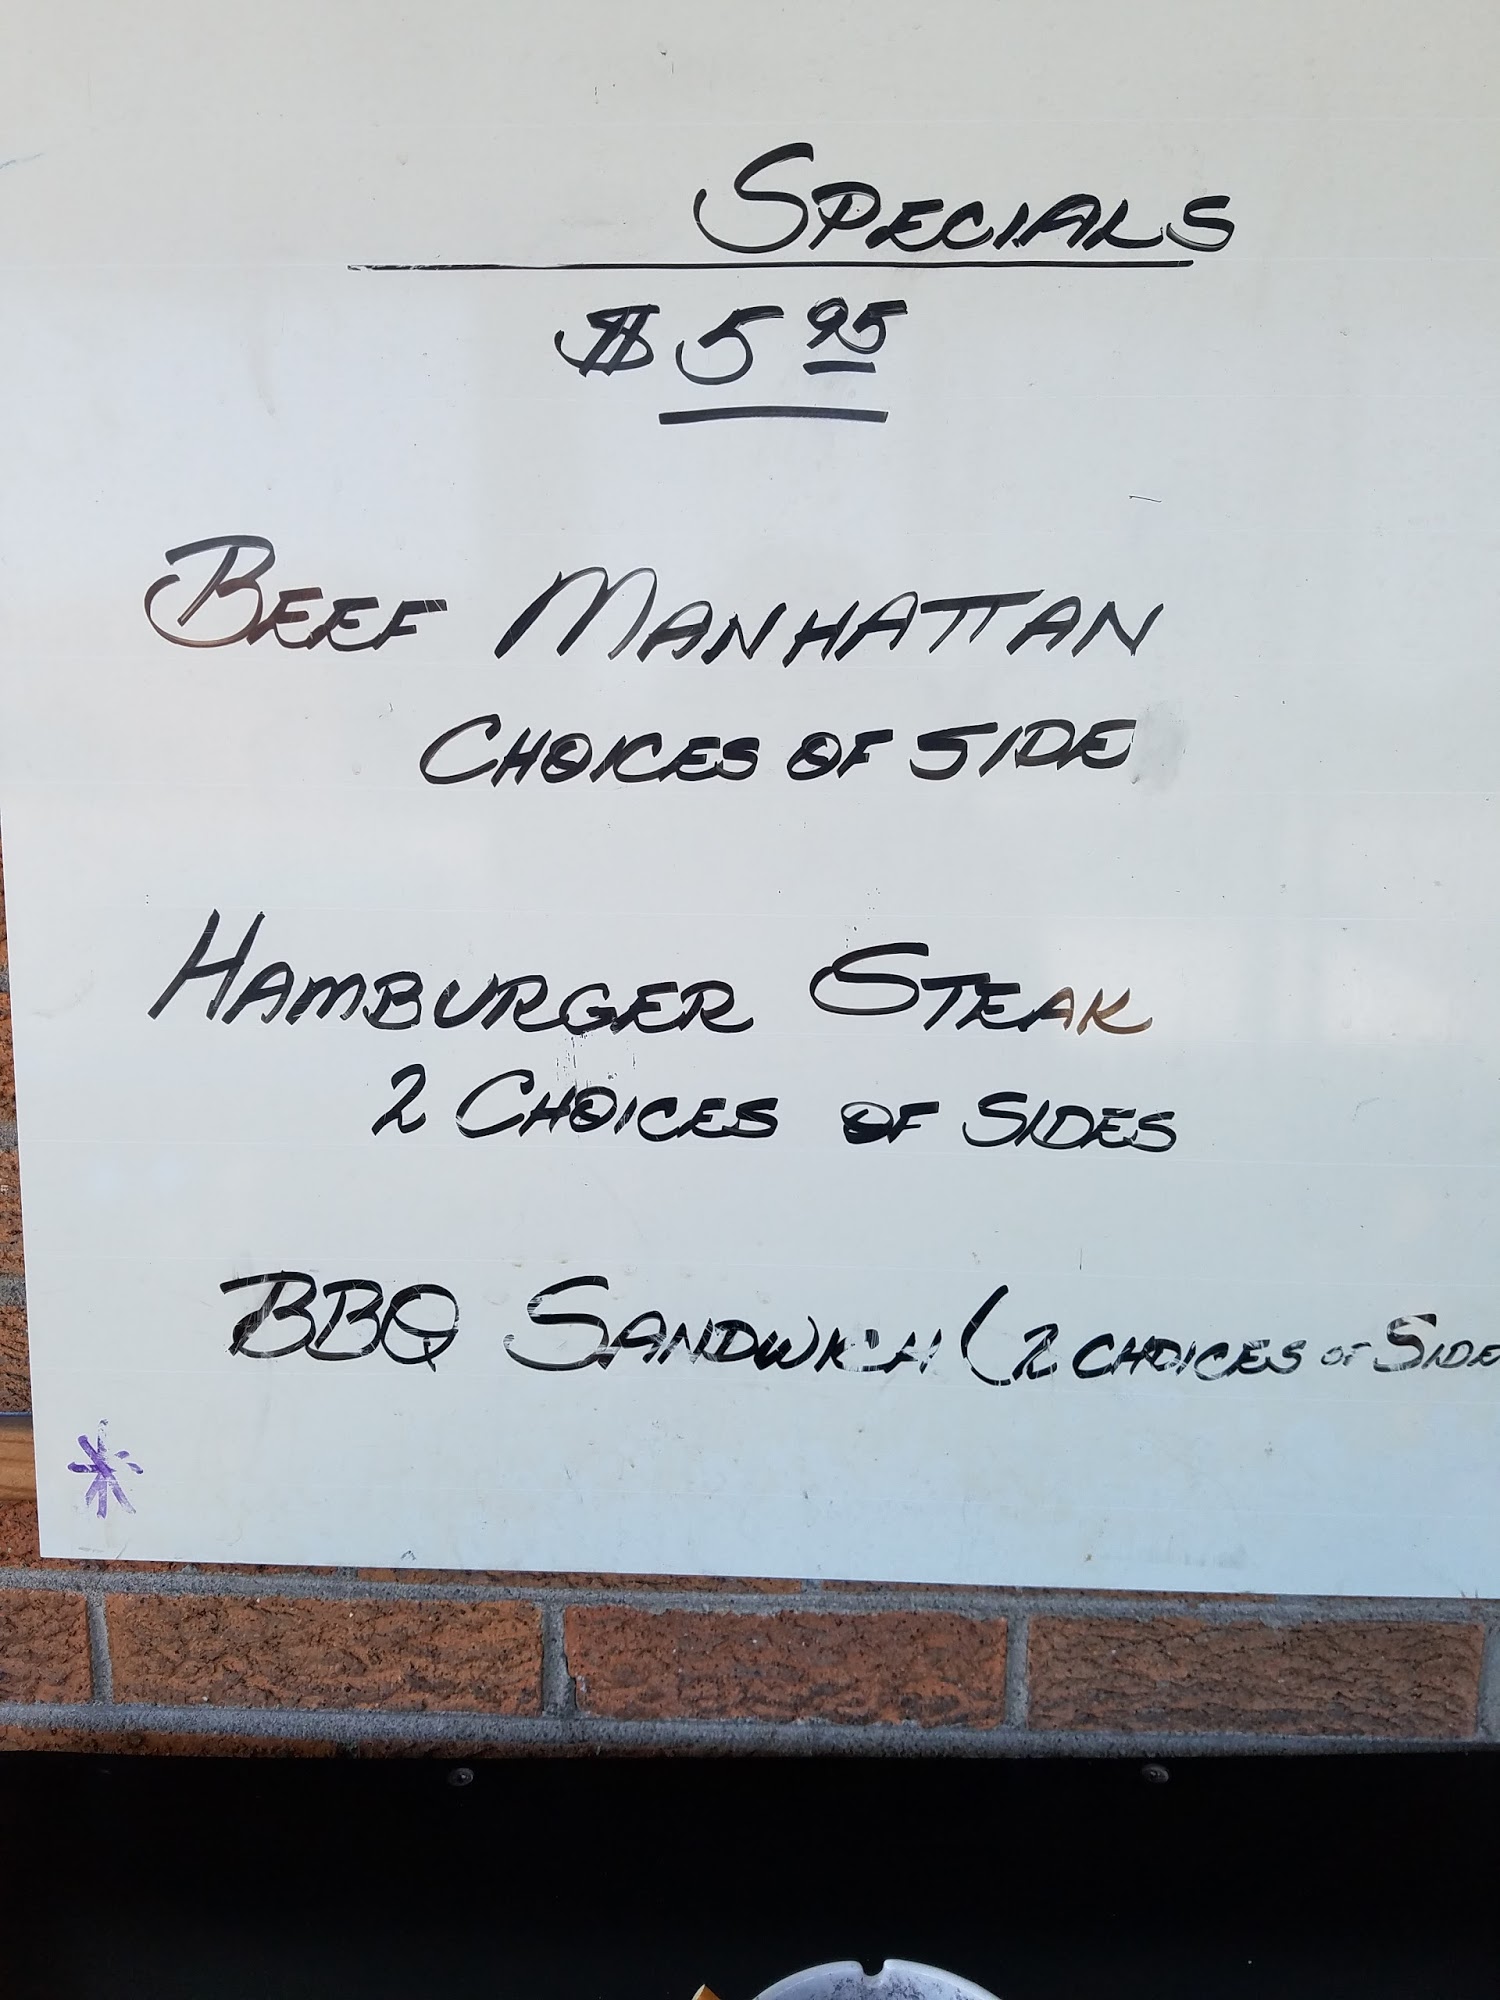 SPECIALS
$5 95
BEEF MANHATTAN
CHOICES OF SIDE
HAMBURGER STEAK
2 CHOICES OF SIDES
BBQ SANDWICH (2 CHOICES OF SIDE